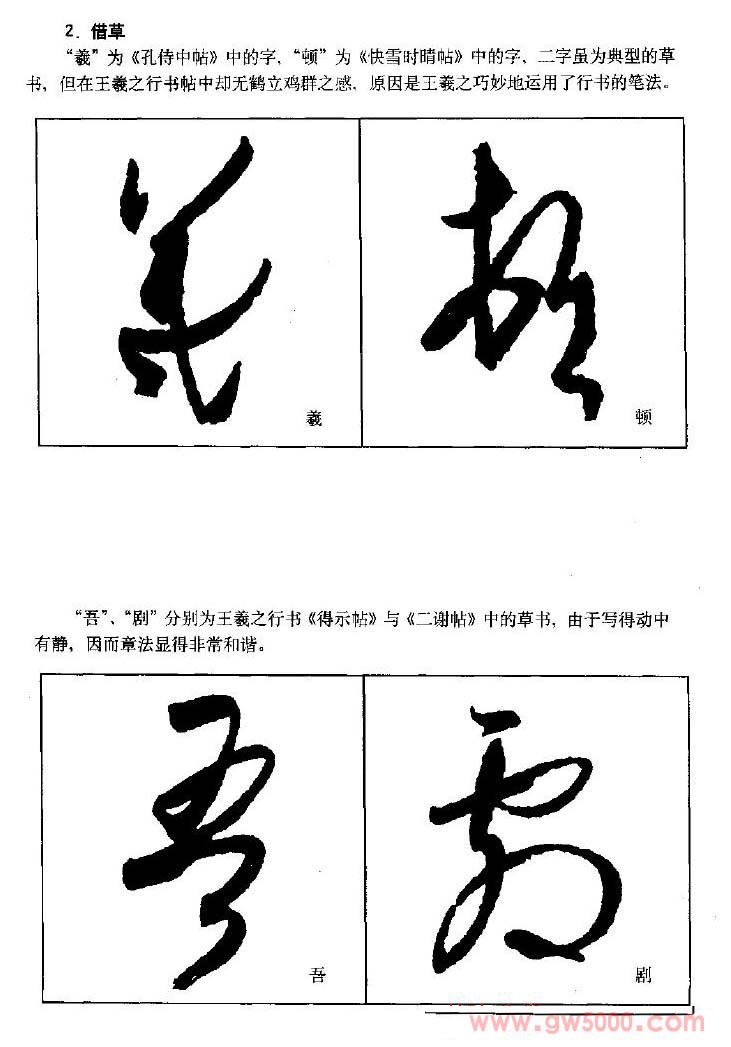 2. 借草
“羲”为《孔侍中帖》中的字，“顿”为《快雪时晴帖》中的字，二字虽为典型的草
书，但在王羲之行书帖中却无鹤立鸡群之感，原因是王羲之巧妙地运用了行书的笔法。
羲 顿
羲 顿
“吾”、“剧”分别为王羲之行书《得示帖》与《二谢帖》中的草书，由于写得动中
有静，因而章法显得非常和谐。
吾 剧
吾 剧
www.gw5000.com